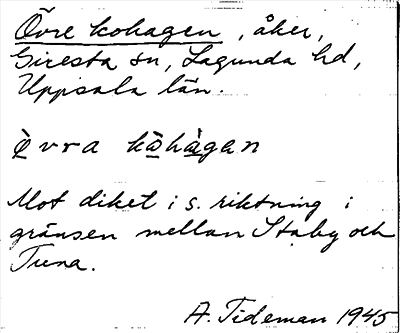 Övre kohagen, åker,
Giresta sn, Lagunda hd,
Uppsala län.
kọ̀hạ̀gan
Mot diket i s. riktning i
gränsen mellan Staby och
Tuna.
A. Tideman 1945